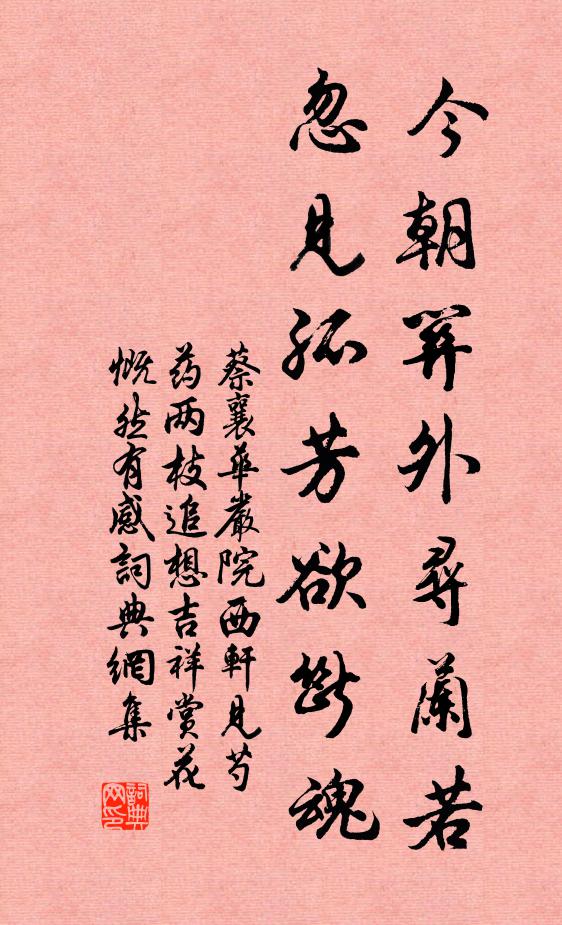 今朝關外尋蘭若
忽見孤芳欲斷魂
蔡襄華嚴院西軒見芍
药两枝追想吉祥賞花
慨然有感詞典網集
詞典
网印